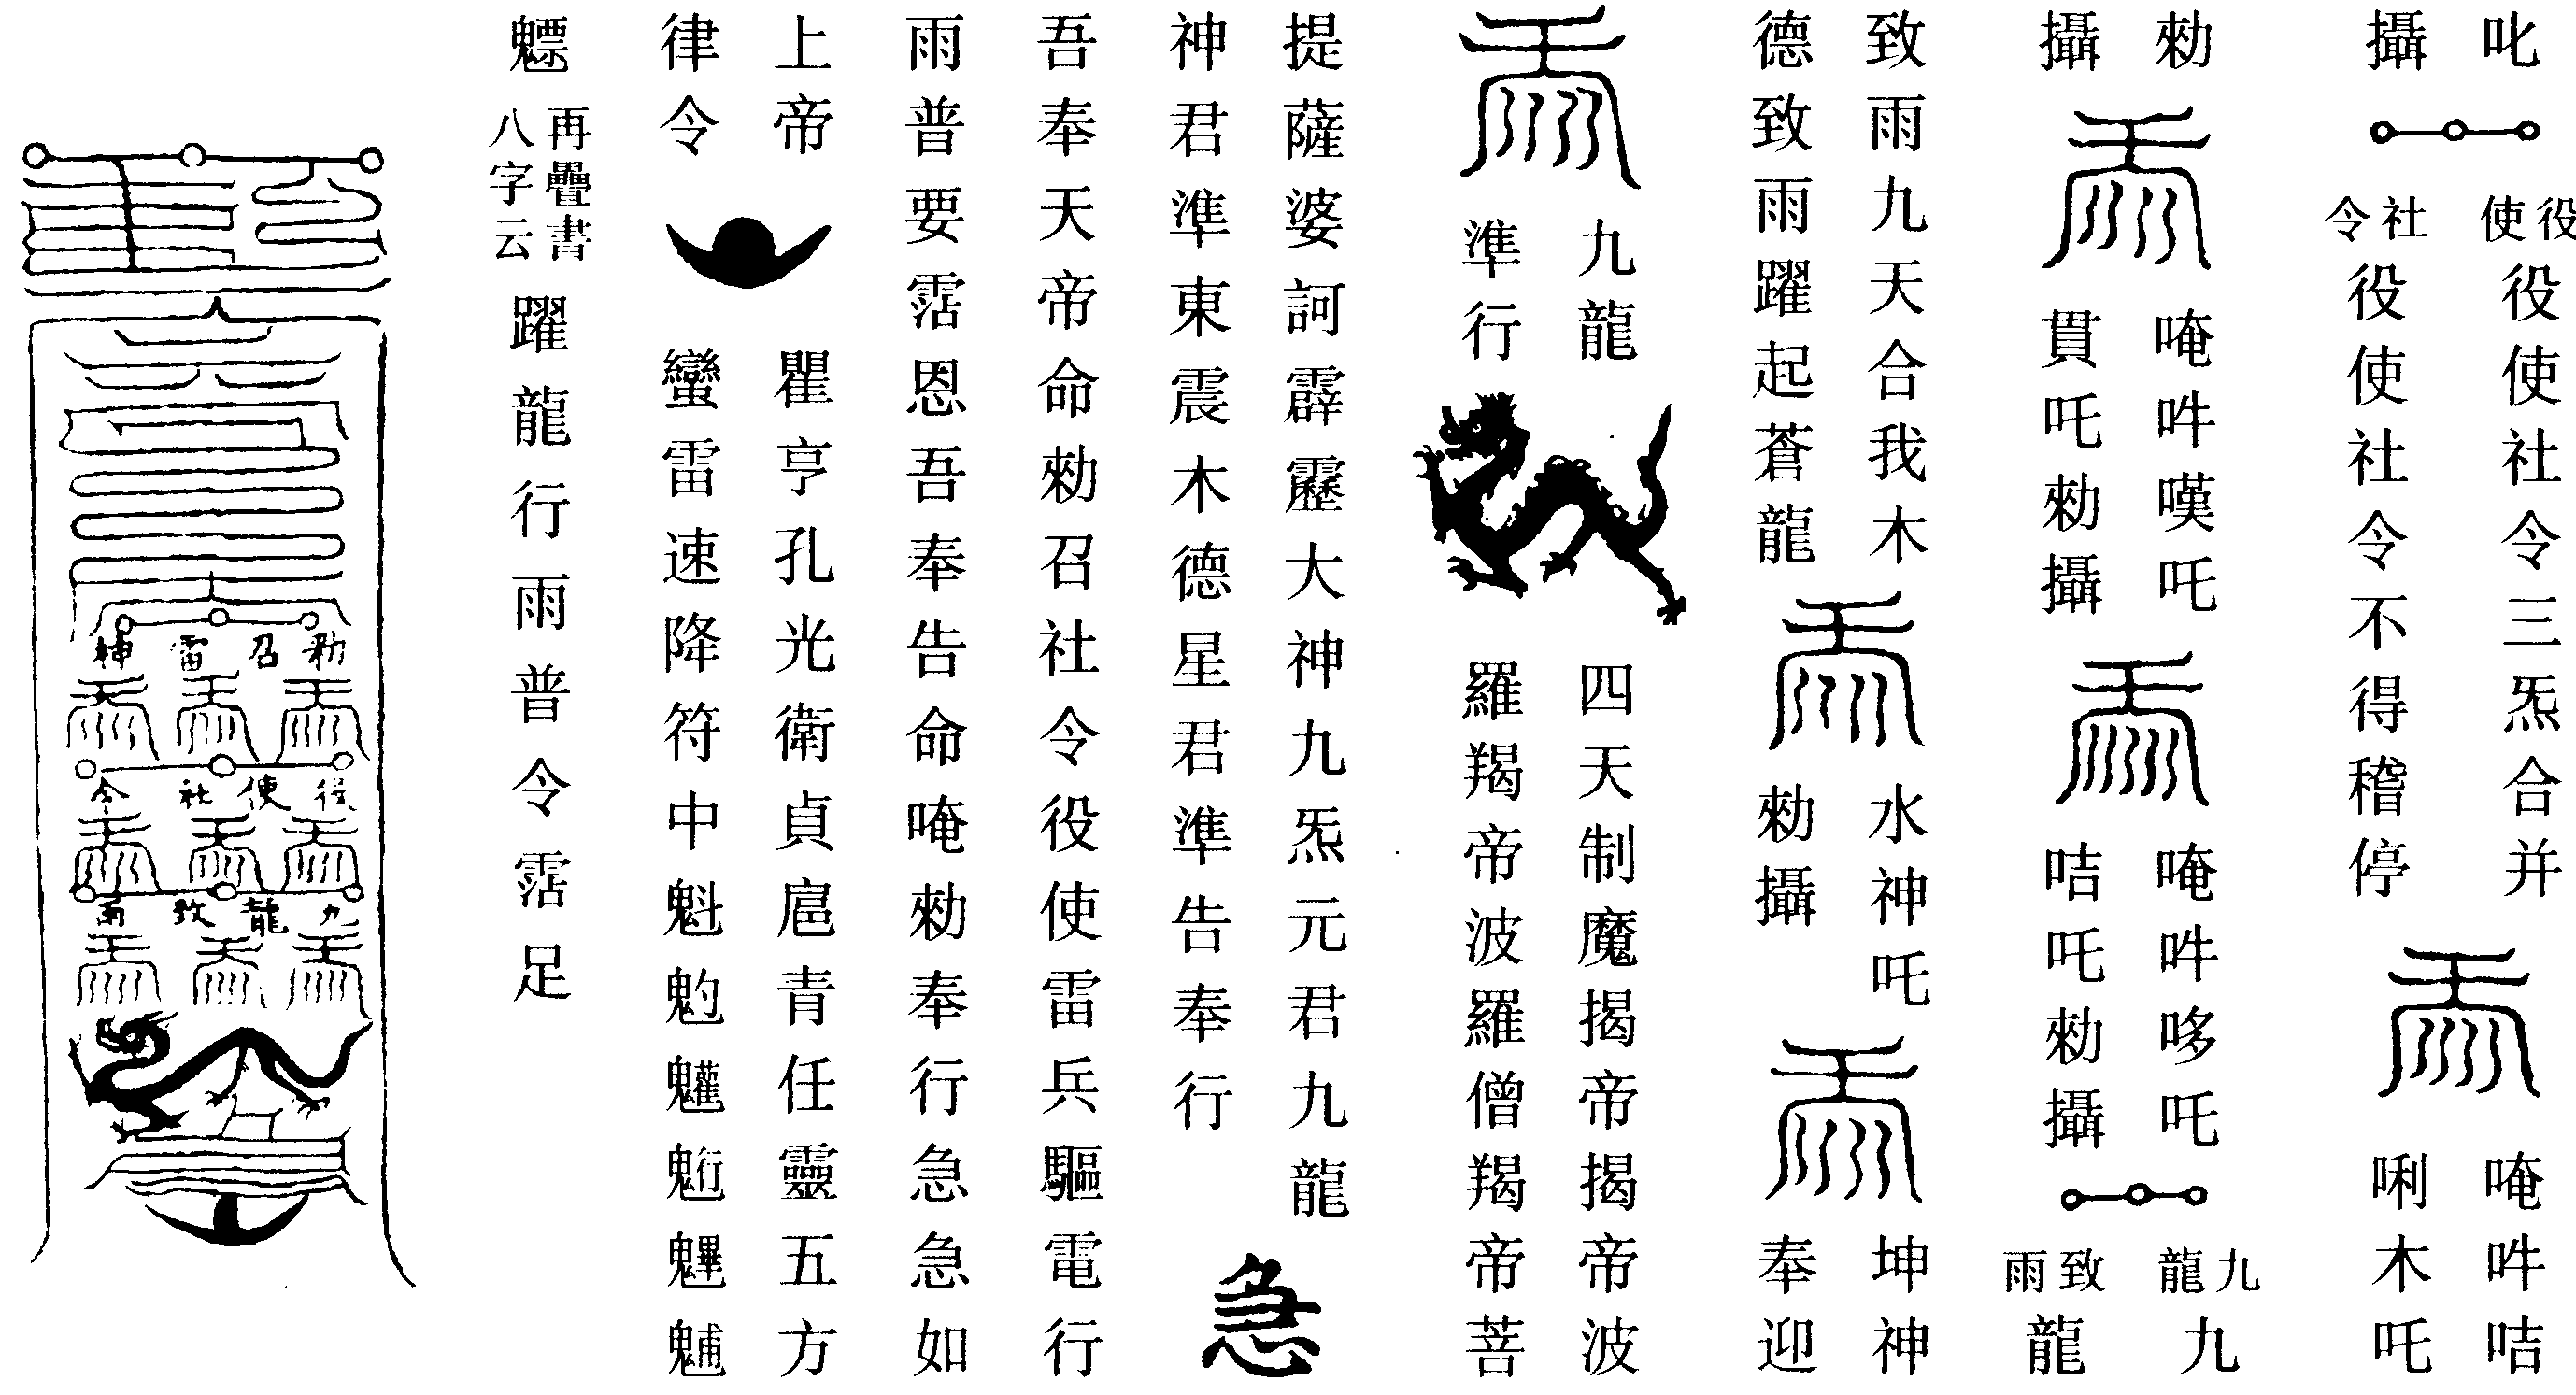 叱
攝
役使
社令
役使社令三炁合并
役使社令不得稽停
唵吽咭
唎木吒
勑
攝
唵吽嘆吒
貫吒勑攝
唵吽哆吒
咭吒勑攝
九龍
致雨
九
龍
致雨九天合我木
德致雨躍起蒼龍
水神吒
勑攝
坤神
奉迎
九龍
準行
四天制魔揭帝揭帝波
羅羯帝波羅僧羯帝菩
提薩婆訶霹靂大神九炁元君九龍
神君準東震木德星君準告奉行
急
吾奉天帝命勑召社令役使雷兵驅電行
雨普要霑恩吾奉告命唵勑奉行急急如
上帝
律令
瞿亨孔光衛貞扈青任靈五方
蠻雷速降符中魁䰢魓
再疊書
八字云
躍龍行雨普令霑足
勑召雷神
役使社令
九龍致雨